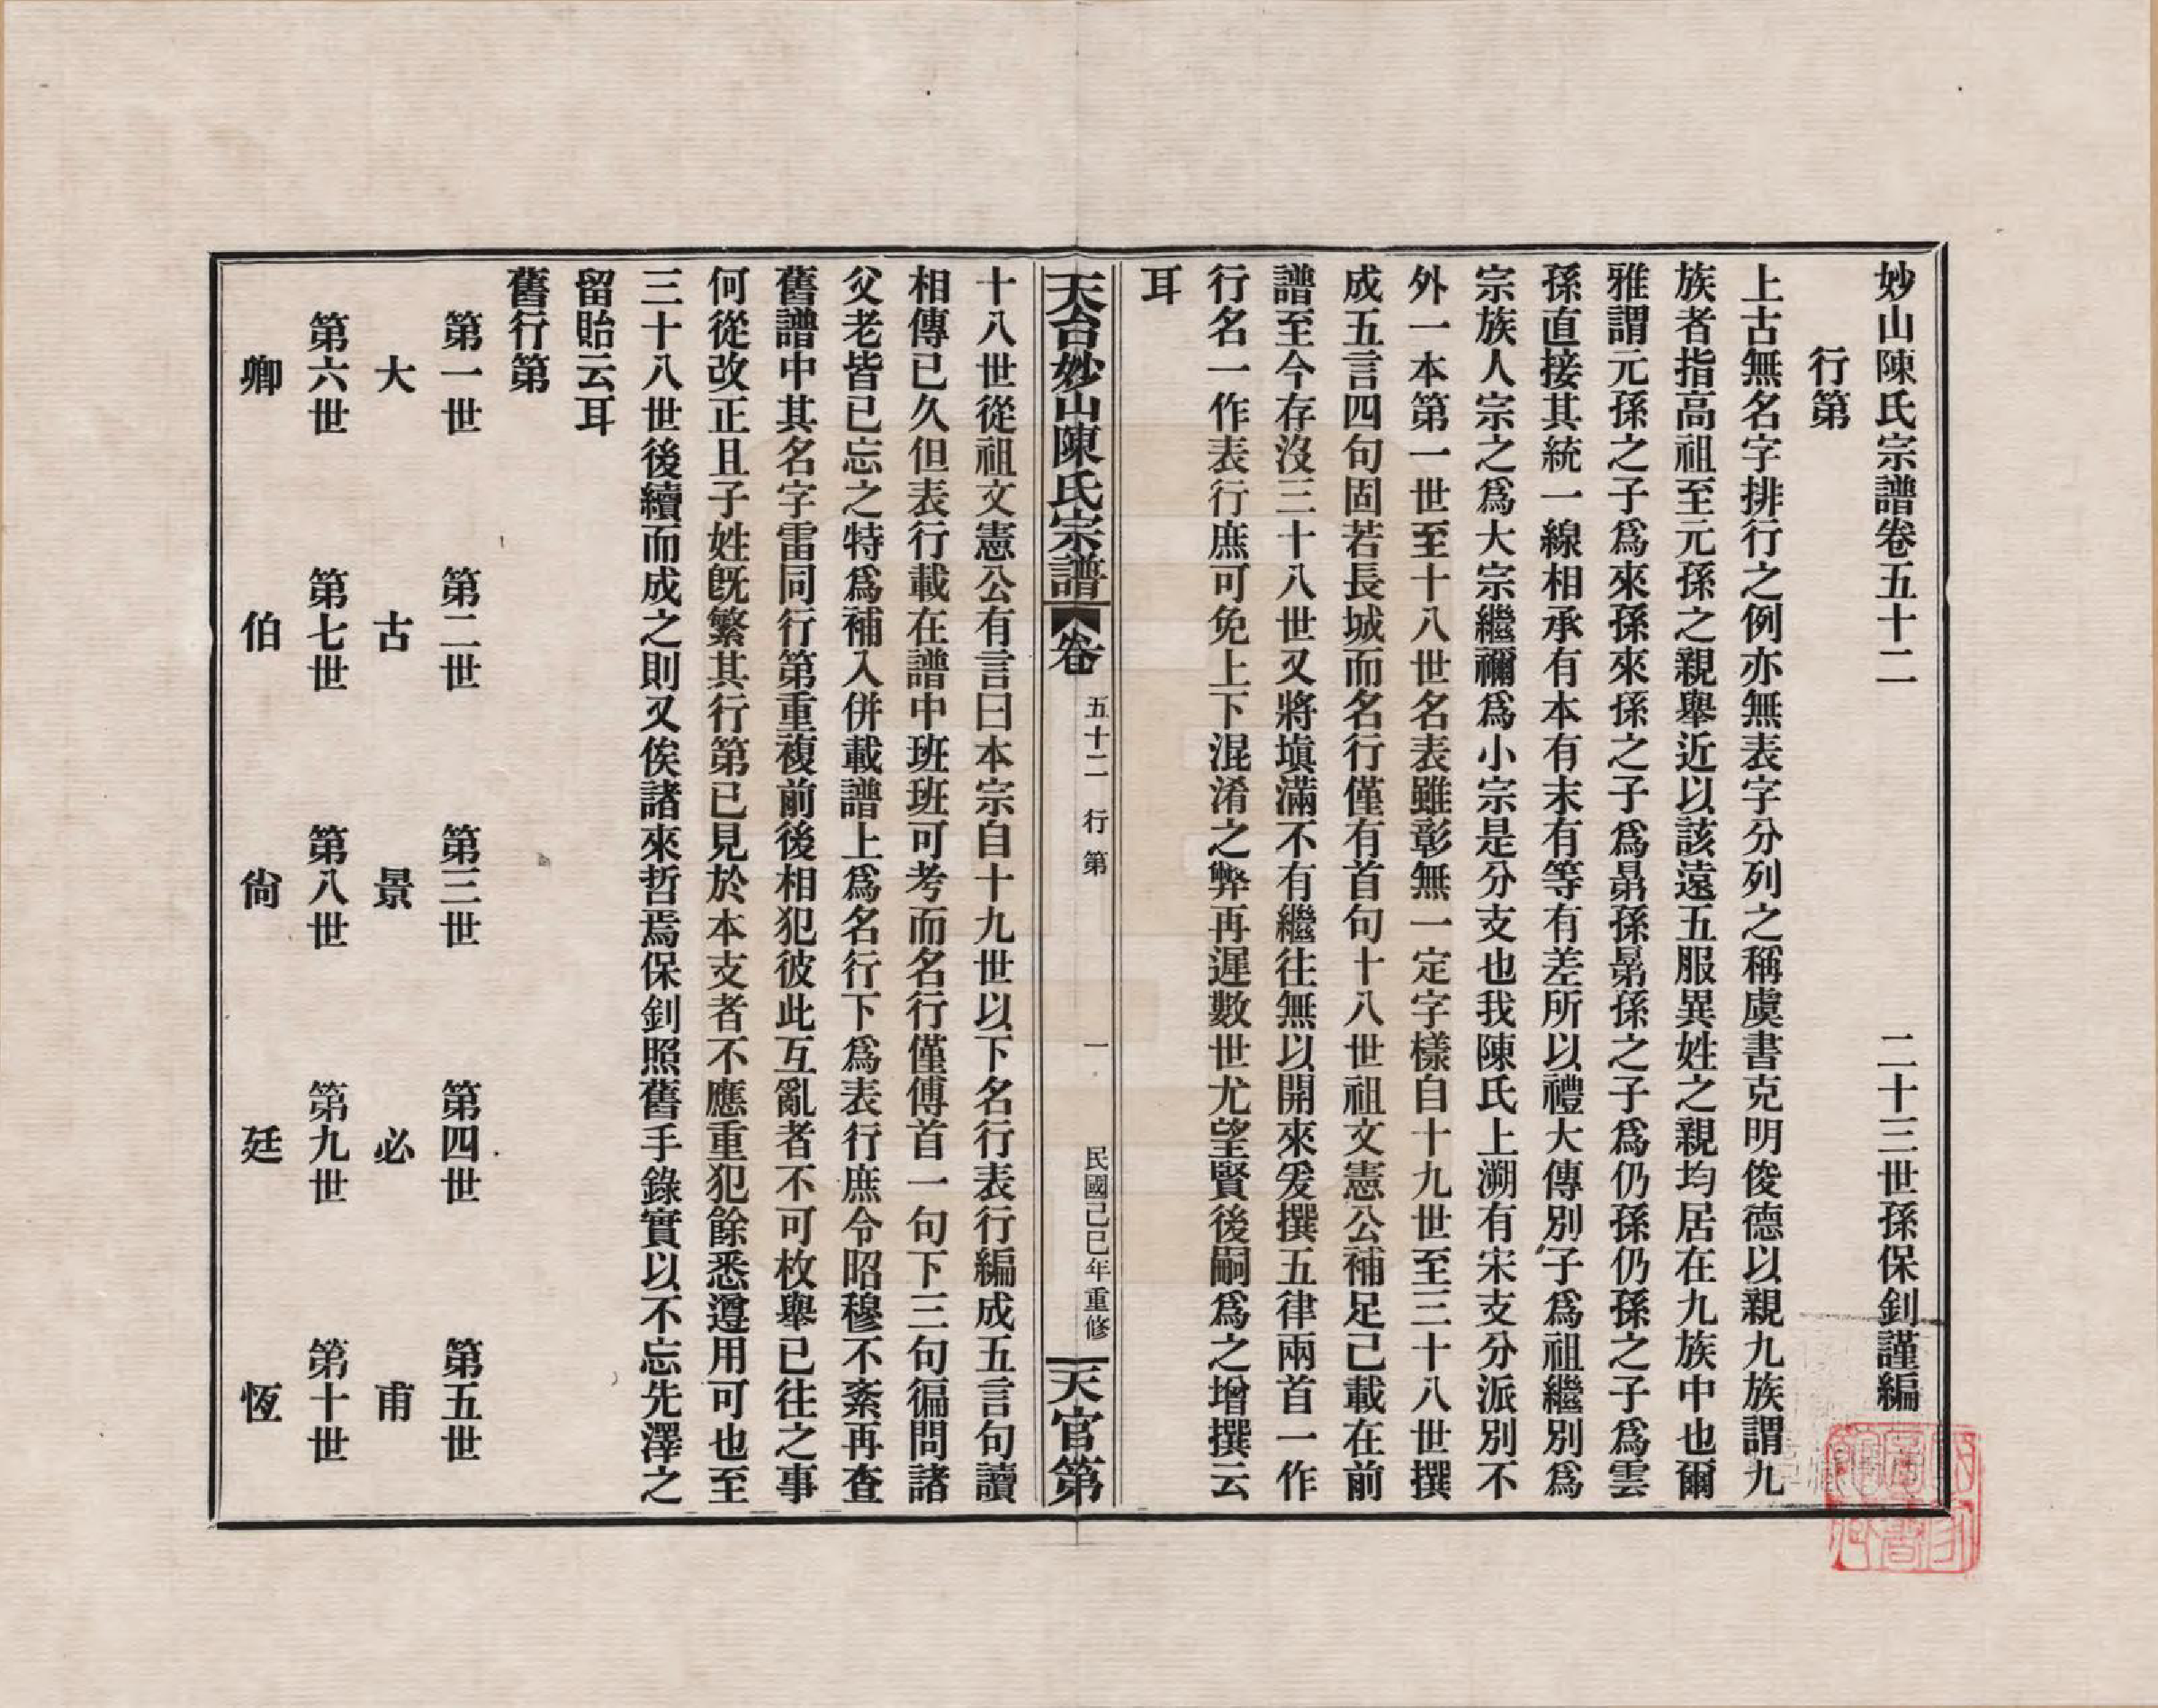 妙山陳氏宗譜卷五十二 二十三世孫保釗謹編
行第
上古無名字排行之例亦無表字分列之稱虞書克明俊德以親九族謂九
族者指高祖至元孫之親舉近以該遠五服異姓之親均居在九族中也爾
雅謂元孫之子爲來孫來孫之子爲晜孫晜孫之子爲仍孫仍孫之子爲雲
孫直接其統一線相承有本有末有等有差所以禮大傳別子爲祖繼別爲
宗族人宗之爲大宗繼禰爲小宗是分支也我陳氏上溯有宋支分派別不
外一本第一世至十八世名表雖彰無一定字樣自十九世至三十八世撰
成五言四句固若長城而名行僅有首句十八世祖文憲公補足己載在前
譜至今存沒三十八世又將塡滿不有繼往無以開來爰撰五律兩首一作
行名一作表行庶可免上下混淆之弊再遲數世尤望賢後嗣爲之增撰云
耳
天台妙山陳氏宗譜 卷 五十二 行第 一 民國己巳年重修 天官第
十八世從祖文憲公有言曰本宗自十九世以下名行表行編成五言句讀
相傳已久但表行載在譜中班班可考而名行僅傅首一句下三句徧問諸
父老皆已忘之特爲補入併載譜上爲名行下爲表行庶令昭穆不紊再查
舊譜中其名字雷同行第重複前後相犯彼此互亂者不可枚舉已往之事
何從改正且子姓旣繁其行第已見於本支者不應重犯餘悉遵用可也至
三十八世後續而成之則又俟諸來哲焉保釗照舊手錄實以不忘先澤之
留貽云耳
舊行第
第一世 第二世 第三世 第四世 第五世
大 古 景 必 甫
第六世 第七世 第八世 第九世 第十世
卿 伯 尙 廷 恆